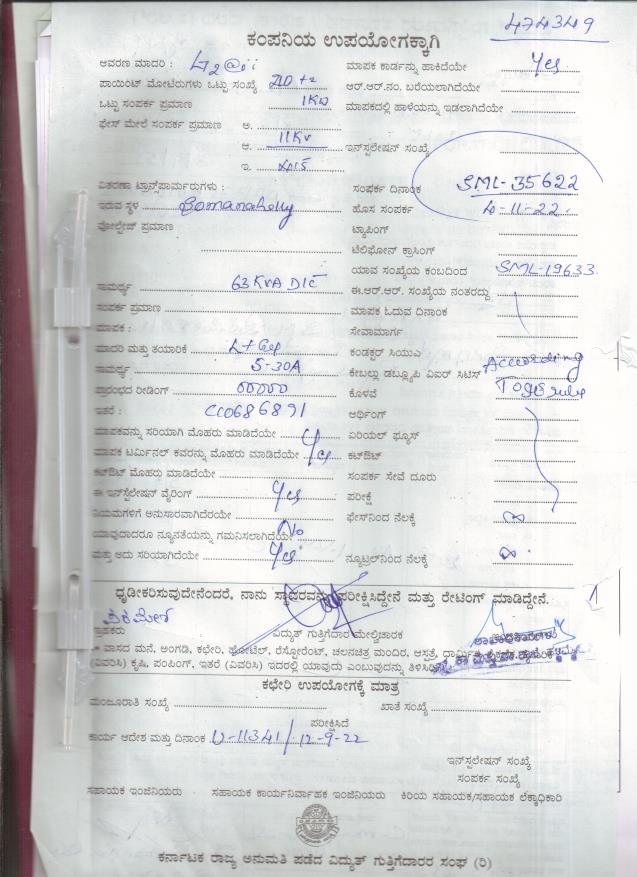 474349
ಕಂಪನಿಯ ಉಪಯೋಗಕ್ಕಾಗಿ
ಆವರಣ ಮಾದರಿ : ಮಾಪಕ ಕಾರ್ಡನ್ನು ಹಾಕಿದೆಯೇ Yes
ಪಾಯಿಂಟ್ ಮೋಟಿರುಗಳು ಒಟ್ಟು ಸಂಖ್ಯೆ ಆರ್.ಆರ್.ನಂ. ಬರೆಯಲಾಗಿದೆಯೇ
ಒಟ್ಟು ಸಂಪರ್ಕ ಪ್ರಮಾಣ 1KW ಮಾಪಕದಲ್ಲಿ ಹಾಳೆಯನ್ನು ಇಡಲಾಗಿದೆಯೇ
ಫೇಸ್ ಮೇಲೆ ಸಂಪರ್ಕ ಪ್ರಮಾಣ ಅ.
ಆ. 11Kv ಇನ್‌ಸ್ಟಲೇಷನ್ ಸಂಖ್ಯೆ
ಇ.
ವಿತರಣಾ ಟ್ರಾನ್ಸ್‌ಫಾರ್ಮರುಗಳು : ಸಂಪರ್ಕ ದಿನಾಂಕ SML-35622
ಇರುವ ಸ್ಥಳ Bomanahally ಹೊಸ ಸಂಪರ್ಕ 4-11-22
ವೋಲ್ಟೇಜ್ ಪ್ರಮಾಣ ಟ್ಯಾಪಿಂಗ್
ಟೆಲಿಫೋನ್ ಕ್ರಾಸಿಂಗ್
ಯಾವ ಸಂಖ್ಯೆಯ ಕಂಬದಿಂದ SML-19633
ಸಾಮರ್ಥ್ಯ 63 KVA DTC ಈ.ಆರ್.ಆರ್. ಸಂಖ್ಯೆಯ ನಂತರದ್ದು
ಸಂಪರ್ಕ ಪ್ರಮಾಣ ಮಾಪಕ ಓದುವ ದಿನಾಂಕ
ಮಾಪಕ : ಸೇವಾಮಾರ್ಗ
ಮಾದರಿ ಮತ್ತು ತಯಾರಿಕೆ ಕಂಡಕ್ಟರ್ ಸಿಯುಎ
ಸಾಮರ್ಥ್ಯ 5-30A ಕೇಬಲ್ಲು ಡಬ್ಲ್ಯೂಪಿ ವಿಐರ್ ಸಿಟಿಸ್ According
ಪ್ರಾರಂಭದ ರೀಡಿಂಗ್ 00000 ಕೊಳವೆ
ಇತರೆ : CC0686891 ಆರ್ಥಿಂಗ್
ಮಾಪಕವನ್ನು ಸರಿಯಾಗಿ ಮೊಹರು ಮಾಡಿದೆಯೇ Yes ಏರಿಯಲ್ ಫ್ಯೂಸ್
ಮಾಪಕ ಟರ್ಮಿನಲ್ ಕವರನ್ನು ಮೊಹರು ಮಾಡಿದೆಯೇ Yes ಕಟ್‌ಔಟ್
ಕಟ್‌ಔಟ್ ಮೊಹರು ಮಾಡಿದೆಯೇ ಸಂಪರ್ಕ ಸೇವೆ ದೂರು
ಈ ಇನ್‌ಸ್ಟಲೇಷನ್ ವೈರಿಂಗ್ Yes ಪರೀಕ್ಷೆ
ನಿಯಮಗಳಿಗೆ ಅನುಸಾರವಾಗಿದೆರಯೇ ಫೇಸ್‌ನಿಂದ ನೆಲಕ್ಕೆ ∞
ಯಾವುದಾದರೂ ನ್ಯೂನತೆಯನ್ನು ಗಮನಿಸಲಾಗಿದೆಯೇ No
ಮತ್ತು ಅದು ಸರಿಯಾಗಿದೆಯೇ Yes ನ್ಯೂಟ್ರಲ್‌ನಿಂದ ನೆಲಕ್ಕೆ ∞
ಧೃಡೀಕರಿಸುವುದೇನೆಂದರೆ, ನಾನು ಸ್ಥಾವರವನ್ನು ಪರೀಕ್ಷಿಸಿದ್ದೇನೆ ಮತ್ತು ರೇಟಿಂಗ್ ಮಾಡಿದ್ದೇನೆ. 1
ಗ್ರಾಹಕರು ವಿದ್ಯುತ್ ಗುತ್ತಿಗೆದಾರ ಮೇಲ್ವಿಚಾರಕ
* ವಾಸದ ಮನೆ, ಅಂಗಡಿ, ಕಛೇರಿ, ಹೋಟೆಲ್, ರೆಸ್ಟೋರೆಂಟ್, ಚಲನಚಿತ್ರ ಮಂದಿರ, ಆಸ್ಪತ್ರೆ,
(ವಿವರಿಸಿ) ಕೃಷಿ, ಪಂಪಿಂಗ್, ಇತರೆ (ವಿವರಿಸಿ) ಇದರಲ್ಲಿ ಯಾವುದು ಎಂಬುವುದನ್ನು
ಕಛೇರಿ ಉಪಯೋಗಕ್ಕೆ ಮಾತ್ರ
ಮಂಜೂರಾತಿ ಸಂಖ್ಯೆ ಖಾತೆ ಸಂಖ್ಯೆ
ಪರೀಕ್ಷಿಸಿದೆ
ಕಾರ್ಯ ಆದೇಶ ಮತ್ತು ದಿನಾಂಕ 11341/12-9-22
ಇನ್‌ಸ್ಟಲೇಷನ್ ಸಂಖ್ಯೆ
ಸಂಪರ್ಕ ಸಂಖ್ಯೆ
ಸಹಾಯಕ ಇಂಜಿನಿಯರು ಸಹಾಯಕ ಕಾರ್ಯನಿರ್ವಾಹಕ ಇಂಜಿನಿಯರು ಕಿರಿಯ ಸಹಾಯಕ/ಸಹಾಯಕ ಲೆಕ್ಕಾಧಿಕಾರಿ
ಕರ್ನಾಟಕ ರಾಜ್ಯ ಅನುಮತಿ ಪಡೆದ ವಿದ್ಯುತ್ ಗುತ್ತಿಗೆದಾರರ ಸಂಘ (ರಿ)